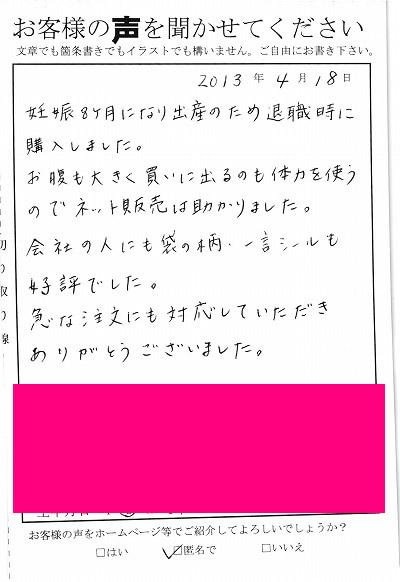 お客様の声を聞かせてください
文章でも箇条書きでもイラストでも構いません。ご自由にお書き下さい。
2013年4月18日
妊娠8ヶ月になり出産のため退職時に
購入しました。
お腹も大きく買いに出るのも体力を使う
のでネット販売は助かりました。
会社の人にも袋の柄・一言シールも
好評でした。
急な注文にも対応していただき
ありがとうございました。
切り取り線
お客様の声をホームページ等でご紹介してよろしいでしょうか?
□はい □匿名で □いいえ